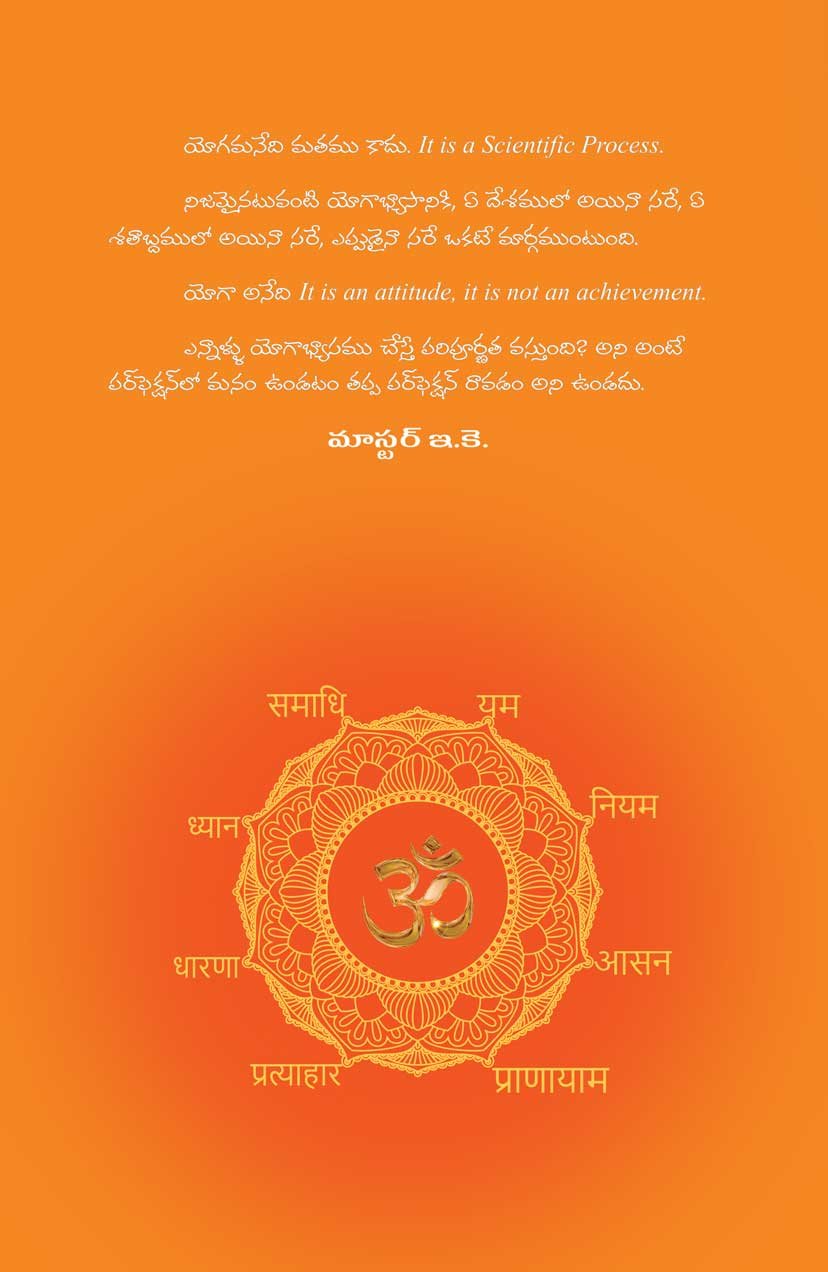 యోగమనేది మతము కాదు. It is a Scientific Process.
నిజమైనటువంటి యోగాభ్యాసానికి, ఏ దేశములో అయినా సరే, ఏ
శతాబ్దములో అయినా సరే, ఎప్పుడైనా సరే ఒకటే మార్గముంటుంది.
యోగా అనేది It is an attitude, it is not an achievement.
ఎన్నాళ్ళు యోగాభ్యాసము చేస్తే పరిపూర్ణత వస్తుంది? అని అంటే
పర్‌ఫెక్షన్‌లో మనం ఉండటం తప్ప పర్‌ఫెక్షన్ రావడం అని ఉండదు.
మాస్టర్ ఇ.కె.
समाधि यम
ध्यान नियम
ॐ
धारणा आसन
प्रत्याहार प्राणायाम